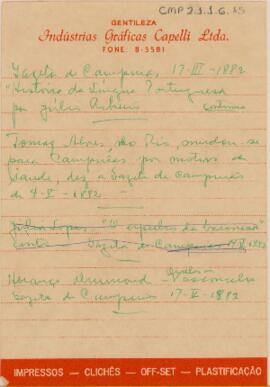 CMP 2.1.1.6.85
GENTILEZA
Indústrias Gráficas Capelli Ltda.
FONE: 8-5581
Gazeta de Campinas 17-III-1882
"História da Língua Portuguesa
por Júlio Ribeiro continua
Tomaz Alves, do Rio, mudou-se
para Campinas por motivo de
saude, diz a Gazeta de Campinas
de 4-V-1882
Julio Lopes
Gazeta de Campinas
Horacio Drumond Vasconcelos
Gazeta de Campinas 17-V-1882
IMPRESSOS — CLICHÊS — OFF-SET — PLASTIFICAÇÃO